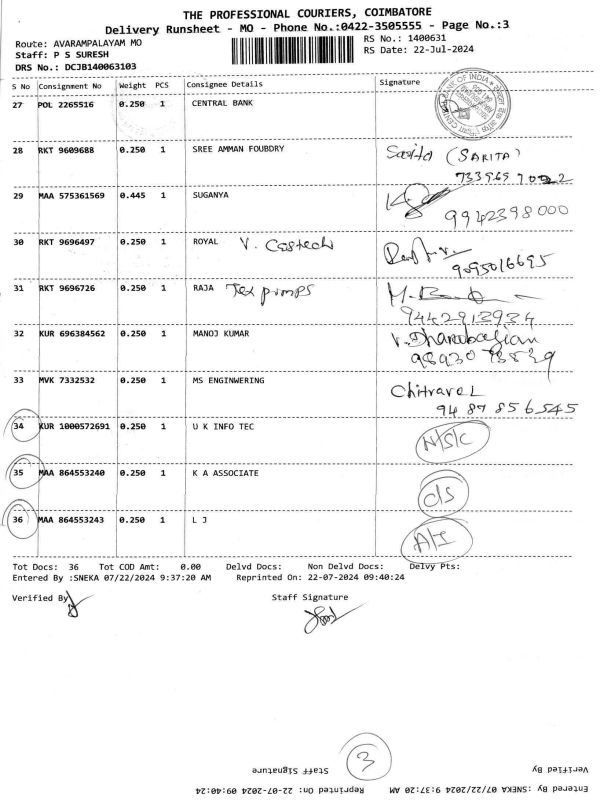 THE PROFESSIONAL COURIERS, COIMBATORE
Delivery Runsheet - MO - Phone No.:0422-3505555 - Page No.:3
Route: AVARAMPALAYAM MO
RS No.: 1400631
Staff: P S SURESH
RS Date: 22-Jul-2024
DRS No.: DCJB140063103
S No Consignment No Weight PCS Consignee Details Signature
27 POL 2265516 0.250 1 CENTRAL BANK
28 RKT 9609688 0.250 1 SREE AMMAN FOUBDRY Sarita (SARITA)
29 MAA 575361569 0.445 1 SUGANYA
9942398000
30 RKT 9696497 0.250 1 ROYAL V. Castech
9095016695
31 RKT 9696726 0.250 1 RAJA Tex pumps
9442913934
32 KUR 696384562 0.250 1 MANOJ KUMAR
33 MVK 7332532 0.250 1 MS ENGINWERING Chitravel
94 87 856545
34 KUR 1000572691 0.250 1 U K INFO TEC N/S/C
35 MAA 864553240 0.250 1 K A ASSOCIATE C/S
36 MAA 864553243 0.250 1 L J A/I
Tot Docs: 36 Tot COD Amt: 0.00 Delvd Docs: Non Delvd Docs: Delvy Pts:
Entered By :SNEKA 07/22/2024 9:37:20 AM Reprinted On: 22-07-2024 09:40:24
Verified By
Staff Signature
3
Verified By Staff Signature
Entered By :SNEKA 07/22/2024 9:37:20 AM Reprinted On: 22-07-2024 09:40:24